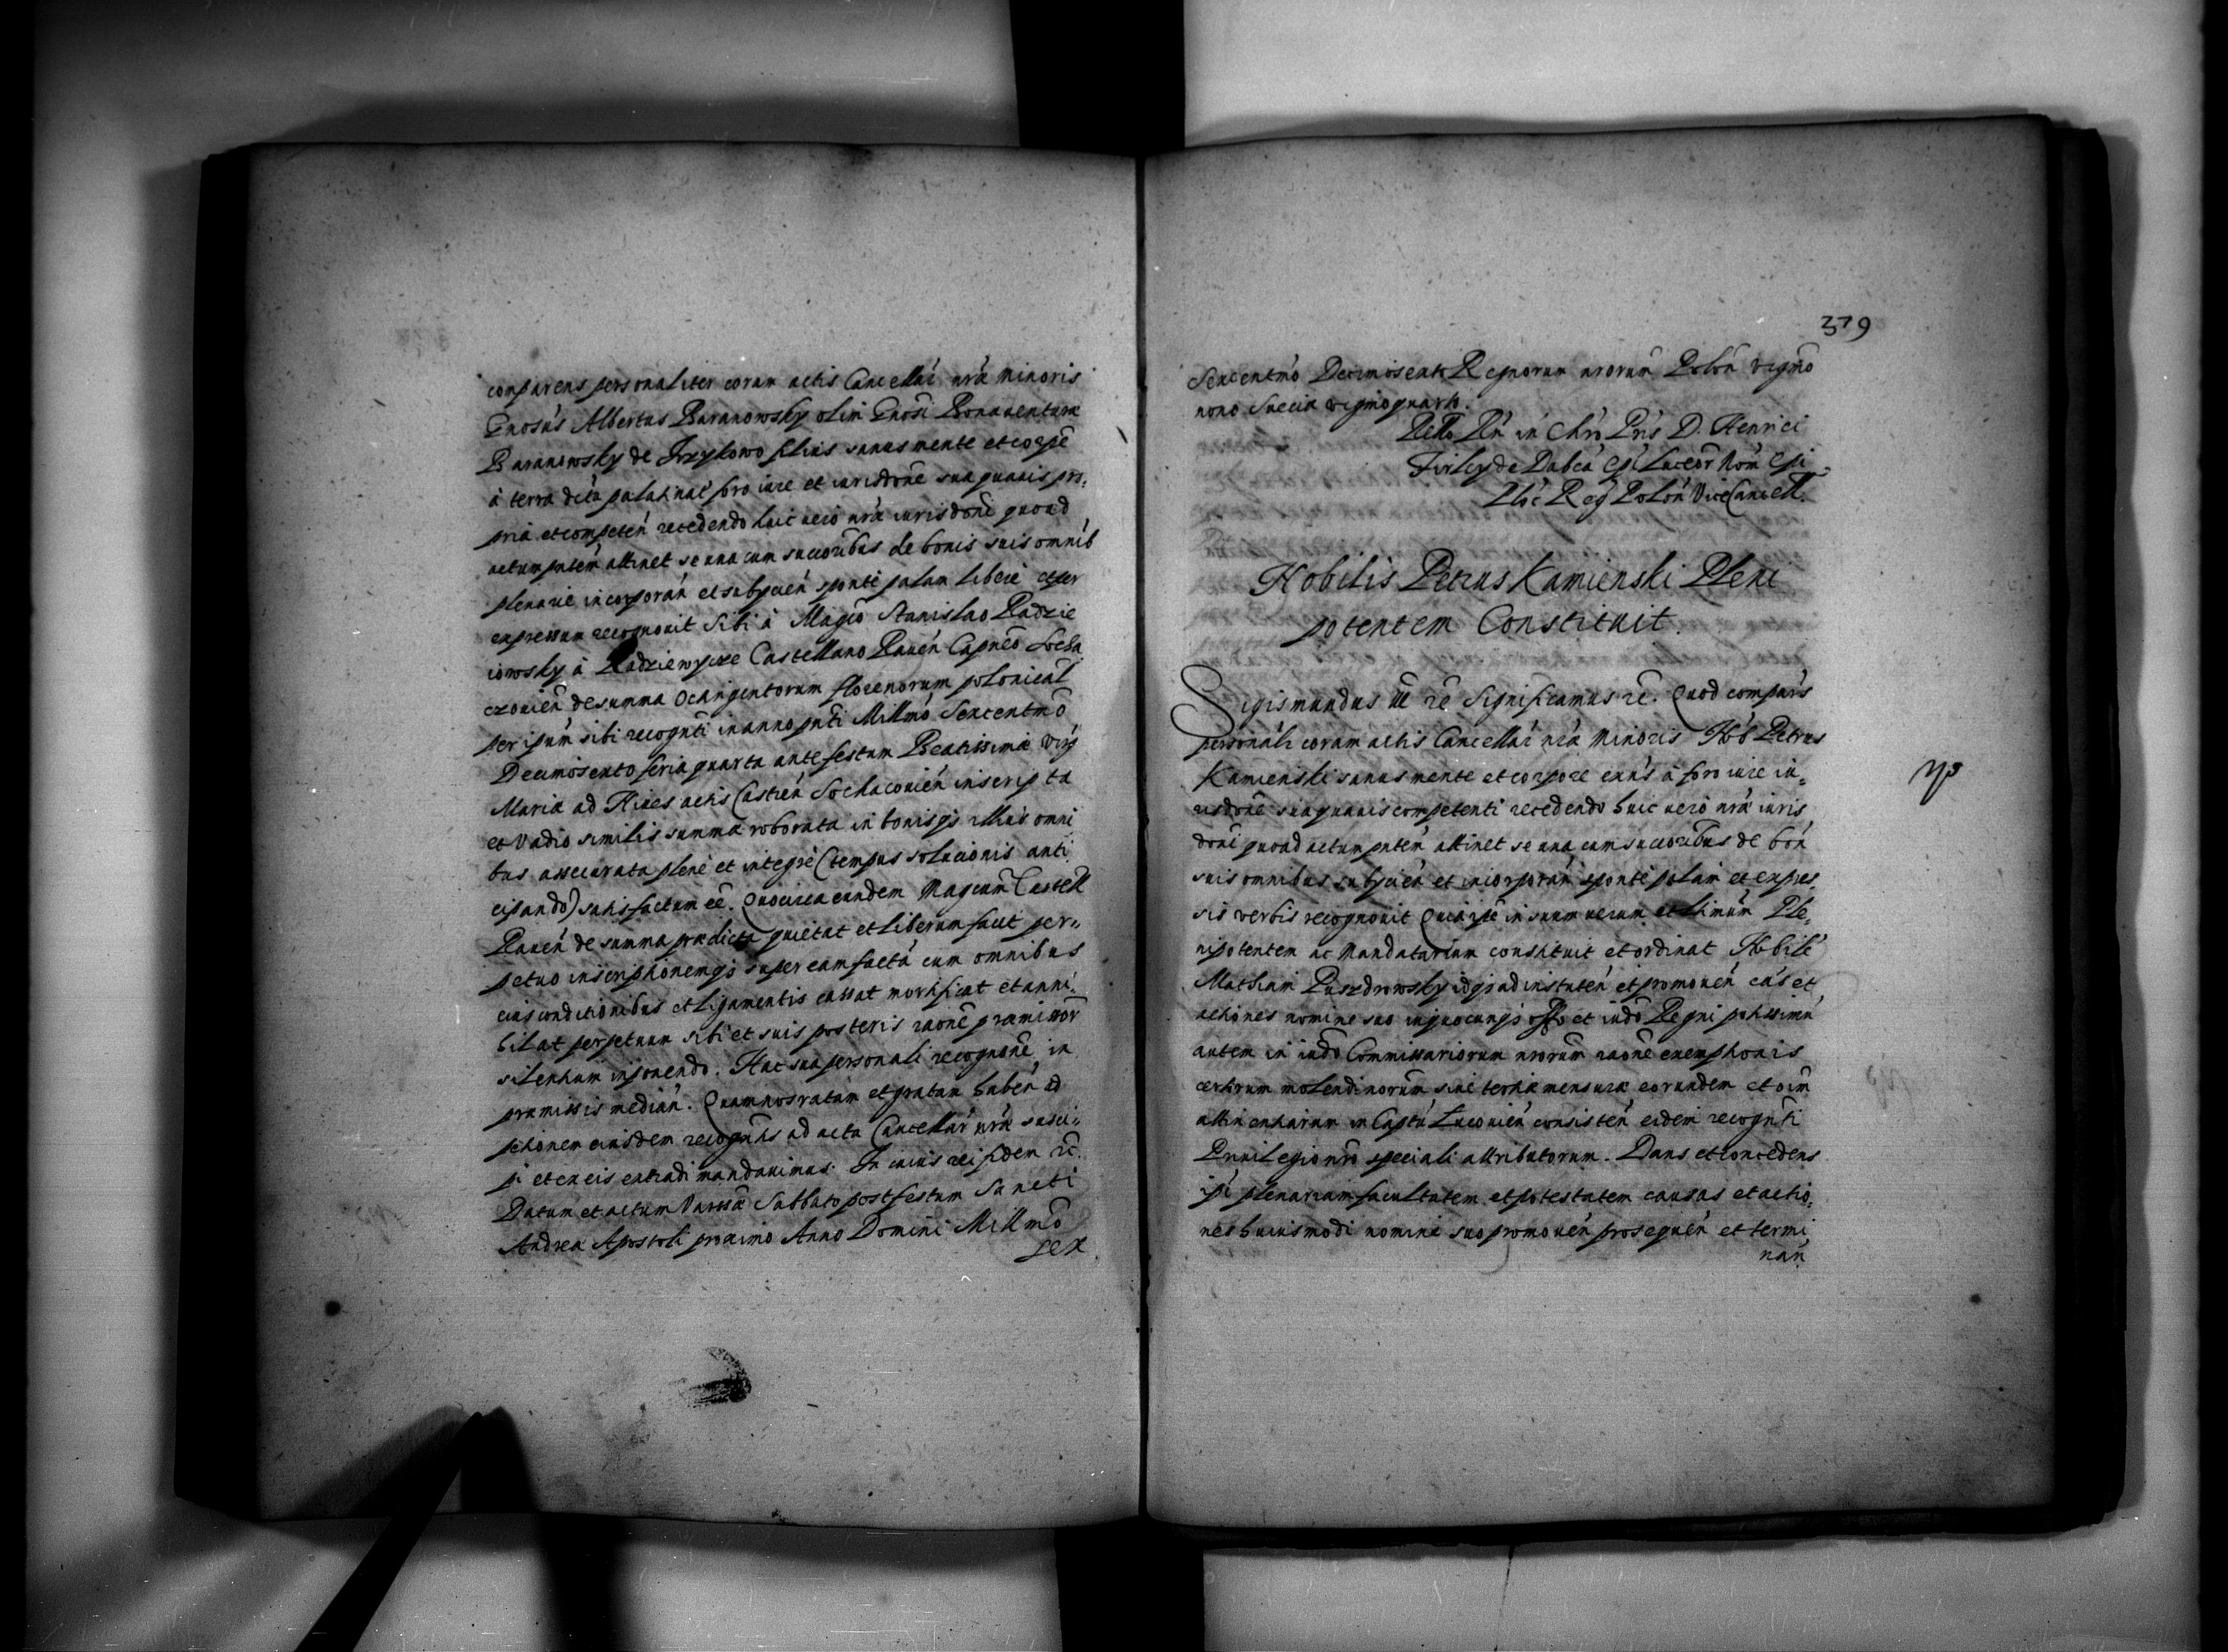 comparens personaliter coram actis Cancellar nrae Minoris
Gnosus Albertus Baranowsky olim Gnosi Bonauentura
Baranowsky de filius sanus mente et corpe
à terra foro iure et iurisdone sua quauis pro,
pria et competen recedendo huic uero nrae iurisdoni quoad
actum pntem attinet se una cum succoribus de bonis suis omnib
plenarie incorporan et subycien sponte palam libere et per
expressum recognouit Sibi à Magco Stanislao Radzie
iowsky à Castellano Rauen Capneo Socha
czouien de summa octingentorum florenorum polonical
per ipsum sibi recognti in anno pnti Millmo Sexcentmo
Decimosexto feria quarta ante festum Beatissimae Virg
Maria ad Niues actis Castren Sochacouien inscripta
et Vadio similis summae roborata in bonisqs illius omni
bus assecurata plene et integre (tempus solucionis anti
cipando) satisfactum ee. Quocirca eundem Magcum Castell
Rauen de summa praedicta quietat et liberum facit per„
petuo inscriptionemqs super eam facta cum omnibus
eius conditionibus et ligamentis cassat mortificat et anni,
hilat perpetuum sibi et suis posteris raone praemissor
silentium imponendo. Hac sua personali recognone in
praemissis median. Quam nos ratam et gratam haben ad
petionem eiusdem recogntis ad acta Cancellar nrae susci„
pi et ex eis extradi mandauimus. In cuius rei fidem rc.
Datum et actum Varssa Sabbato post festum Sancti
Andrea Apostoli proximo Anno Domini Millmo
Sex
379
Sexcentmo Decimosexto Regnorum nrorum Polon vigmo
nono Suecia vigmoquarto.
Relo Rn in Chro Pris D. Henrici
Firley de Dabca Epi Luceor Nom Epi
Ploc Reg Polon ViceCancell.
Nobilis Petrus Kamienski Pleni
potentem Constituit.
Sigismundus III rc Significamus rc. Quod compars
personali coram actis Cancellar nrae Minoris Nob Petrus
Kamienski sanus mente et corpore exns à foro iure iu,
risdone sua quauis competenti recedendo huic uero nrae iuris
doni quoad actum pntem attinet se una cum succoribus de bon
suis omnibus subycien et incorporan sponte palam et expres,
sis verbis recognouit Quia ipse in suum uerum et ltimum Ple,
nipotentem ac Mandatarium constituit et ordinat Nobile
Mathiam Puszdrowsky idqs ad instuten et promouen cas et
actiones nomine suo in quocunqs offo et iudo Regni potissimu
autem in iudo Commissariorum nrorum raone exemptionis
certorum molendinorum siue tertiae mensurae eorundem et oim
attinentiarum in Captu consisten eidem recognti
Priuilegio nro speciali attributorum. Dans et concedens
ipi plenariam facultatem et potestatem causas et actio,
nes huiusmodi nomine suo promouen prosequen et termi
nan